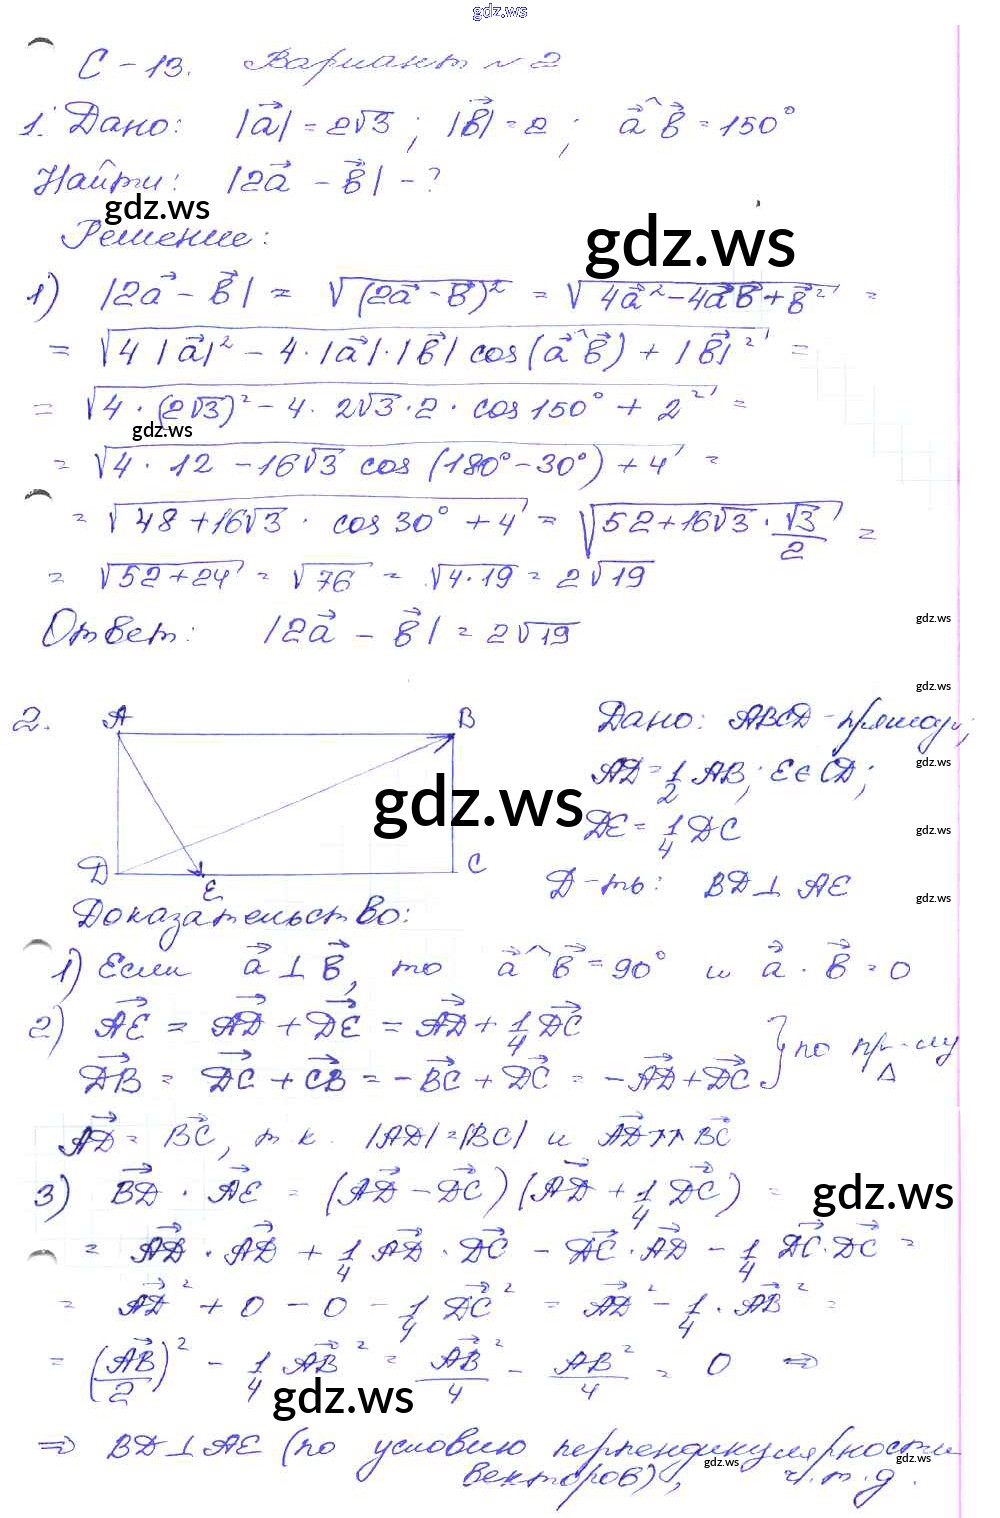 gdz.ws
С-13. Вариант №2
1. Дано: |a⃗| = 2√3 ; |b⃗| = 2 ; a⃗^b⃗ = 150°
Найти: |2a⃗ - b⃗| - ?
gdz.ws
Решение:
gdz.ws
1) |2a⃗ - b⃗| = √(2a⃗ - b⃗)² = √4a⃗² - 4a⃗b⃗ + b⃗² =
= √4|a⃗|² - 4·|a⃗|·|b⃗| cos(a⃗^b⃗) + |b⃗|² =
= √4·(2√3)² - 4·2√3·2·cos150° + 2² =
gdz.ws
= √4·12 - 16√3 cos(180° - 30°) + 4 =
= √48 + 16√3 · cos30° + 4 = √52 + 16√3 · √3/2 =
= √52+24 = √76 = √4·19 = 2√19
gdz.ws
Ответ: |2a⃗ - b⃗| = 2√19
gdz.ws
2. A B
D E C
Дано: ABCD - прямоуг;
gdz.ws
AD = 1/2 AB; E∈CD;
gdz.ws
DE = 1/4 DC
gdz.ws
Д-ть: BD ⊥ AE
gdz.ws
Доказательство:
1) Если a⃗ ⊥ b⃗, то a⃗^b⃗ = 90° и a⃗ · b⃗ = 0
2) AE⃗ = AD⃗ + DE⃗ = AD⃗ + 1/4 DC⃗
DB⃗ = DC⃗ + CB⃗ = -BC⃗ + DC⃗ = -AD⃗ + DC⃗ } по пр-лу Δ
AD⃗ = BC⃗, т.к. |AD| = |BC| и AD⃗ ↑↑ BC⃗
3) BD⃗ · AE⃗ = (AD⃗ - DC⃗)(AD⃗ + 1/4 DC⃗) =
gdz.ws
= AD⃗ · AD⃗ + 1/4 AD⃗ · DC⃗ - DC⃗ · AD⃗ - 1/4 DC⃗ · DC⃗ =
= AD⃗² + 0 - 0 - 1/4 DC⃗² = AD⃗² - 1/4 · AB⃗² =
= (AB⃗/2)² - 1/4 AB⃗² = AB⃗²/4 - AB²/4 = 0 ⇒
gdz.ws
⇒ BD ⊥ AE (по условию перпендикулярности
gdz.ws
gdz.ws
векторов), ч.т.д.